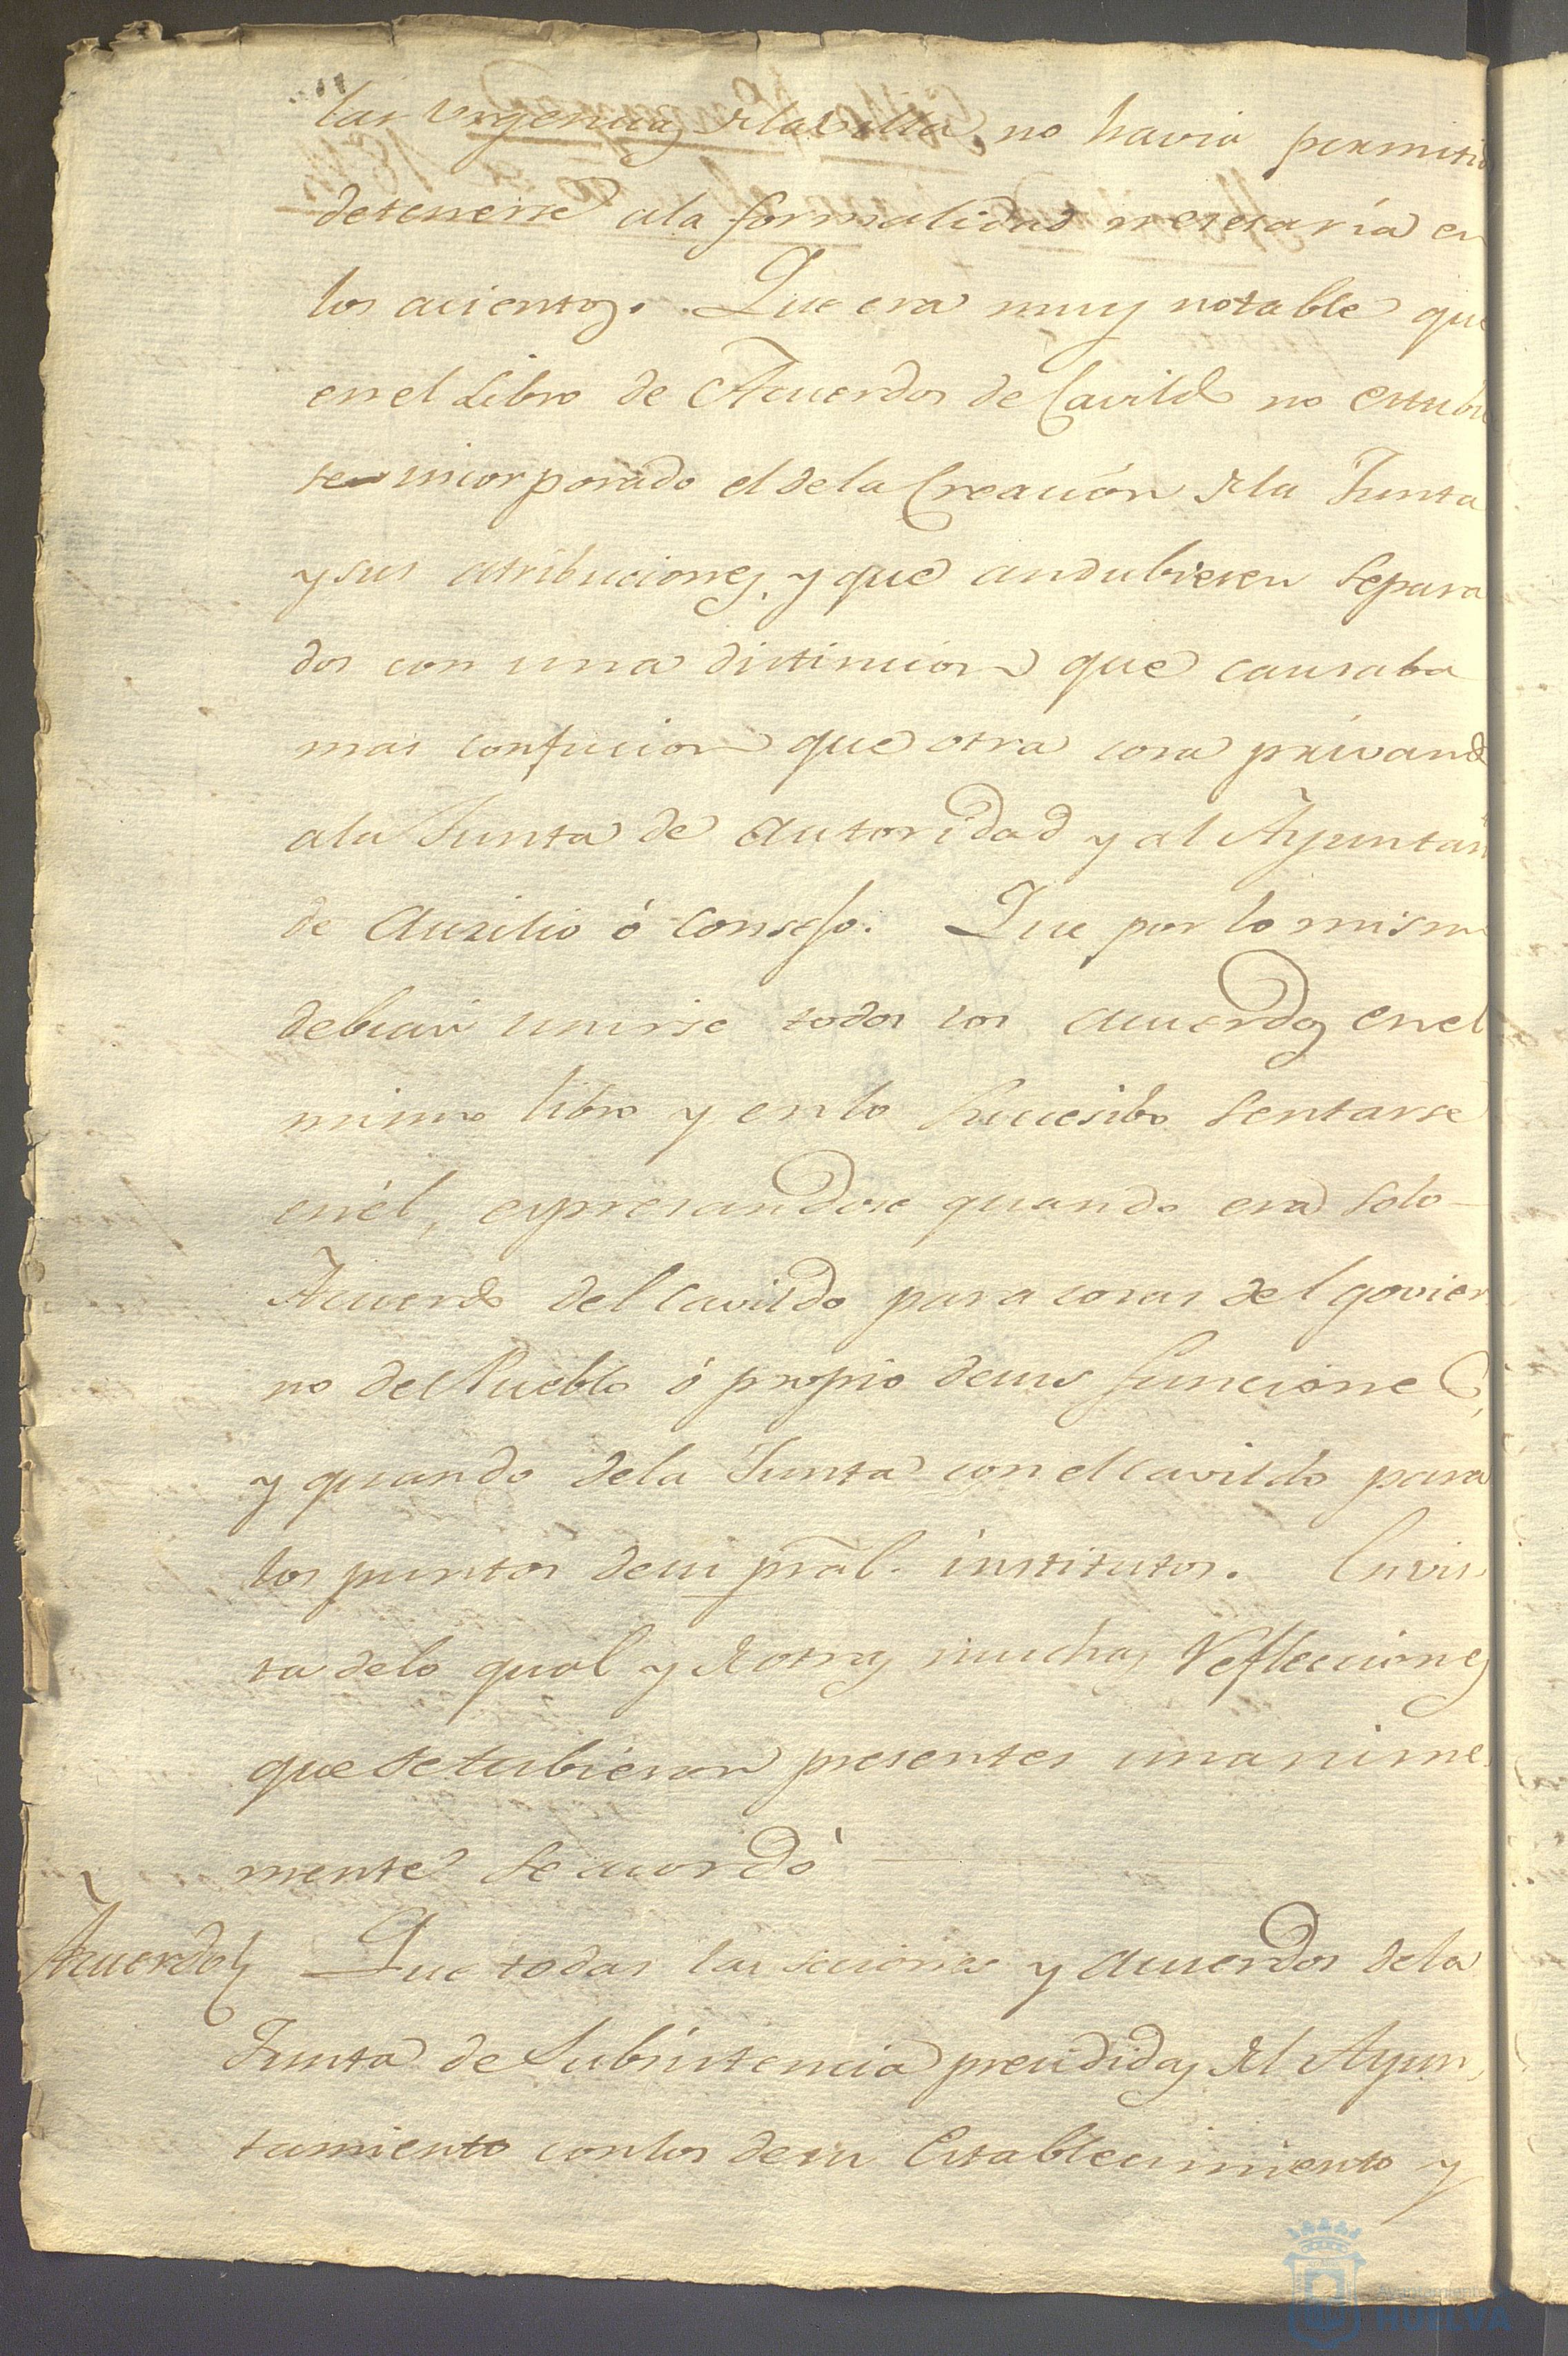 las urgencias de la Villa no havia permitido
detenerse ala formalidad nesesaria en
los acientos. Que era muy notable que
en el Libro de Acuerdos de Cavildo no estubie
se incorporado el dela Creacion de la Junta
y sus atribuciones, y que andubiesen separa
dos con una distincion que causaba
mas confucion que otra cosa privando
ala Junta de autoridad y al Ayuntam
de auxilio ó consejo. Que por lo mismo
debian unirse todos los acuerdos en el
mismo libro y en lo sucesibo sentarse
en él, expresandose quando era solo
Acuerdo del cavildo para cosas del govier
no del Pueblo ó propio desus funciones,
y quando dela Junta con el cavildo para
los puntos desu pral. institutos. En vis
ta delo qual y de otras muchas Reflecciones
que se tubieron presentes unanime
mente se acordó
Acuerdo Que todas las seciones y acuerdos dela
Junta de Subsistencia presididas del Ayun
tamiento con los desu Establecimiento y
Ayuntamiento
HUELVA